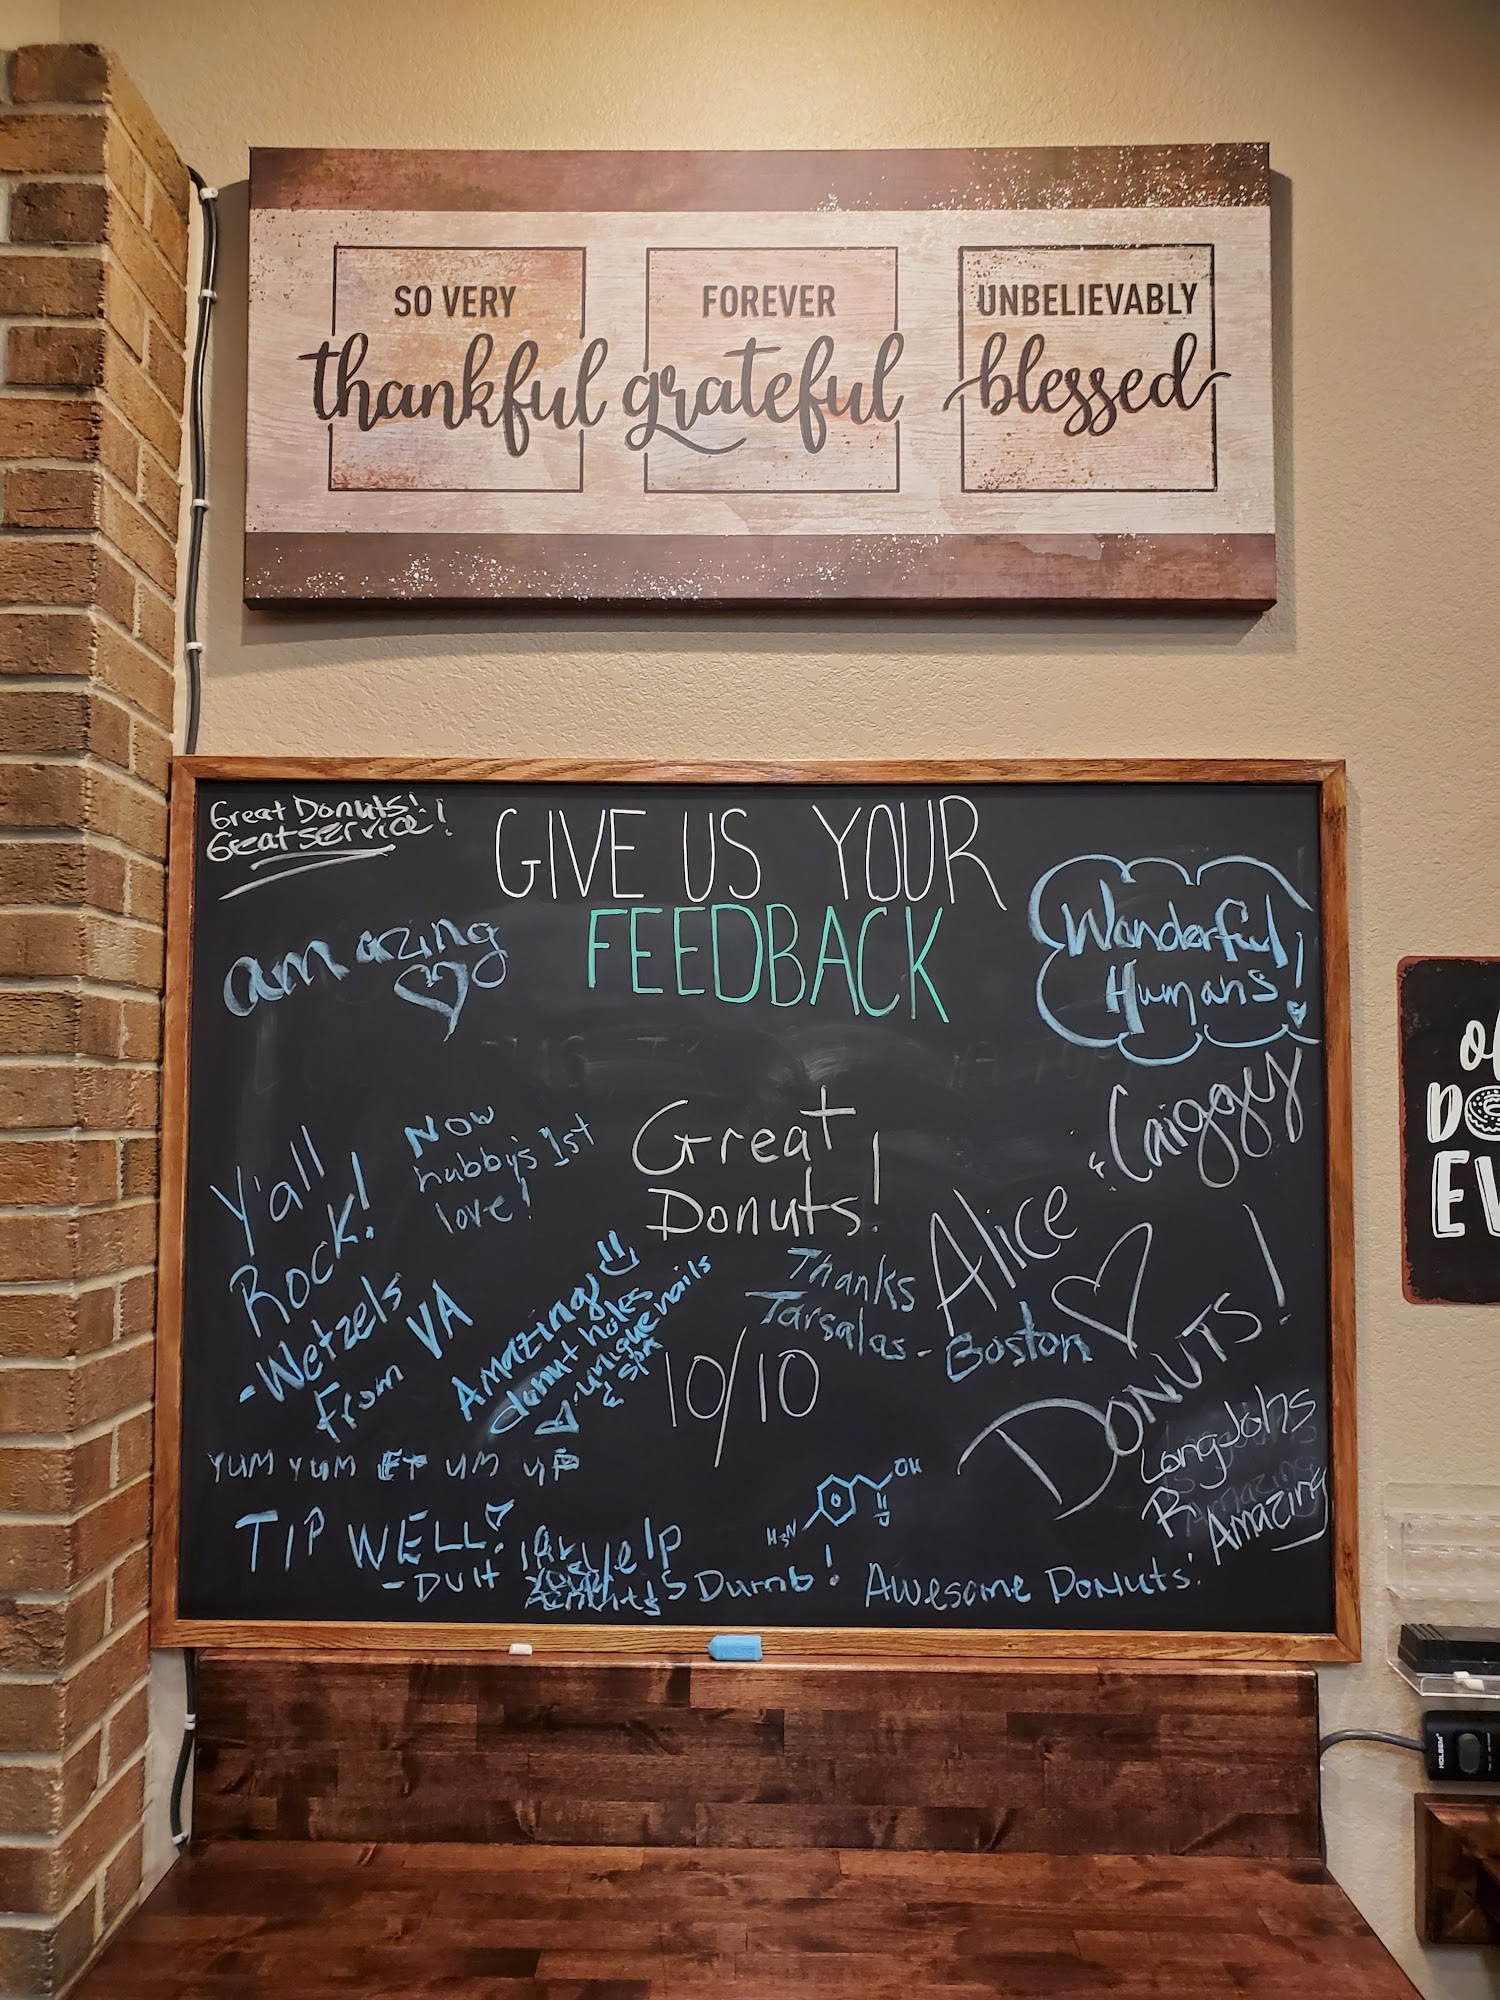 SO VERY
thankful
FOREVER
grateful
UNBELIEVABLY
blessed
Great Donuts!
Great service!
GIVE US YOUR
FEEDBACK
amazing
Wonderful
Humans!
Y'all
Rock!
-Wetzels
From VA
Now
hubby's 1st
love!
Great
Donuts!
Amazing
donut holes
unique nails
& spa
Thanks
Tarsalas - Boston
10/10
Alice
& Craiggy
DONUTS!
Long Johs
R Amazing
YUM YUM
TIP WELL!
Yelp
Dumb!
OH
H₃N
Awesome Donuts!
D
EV
HOLSEM